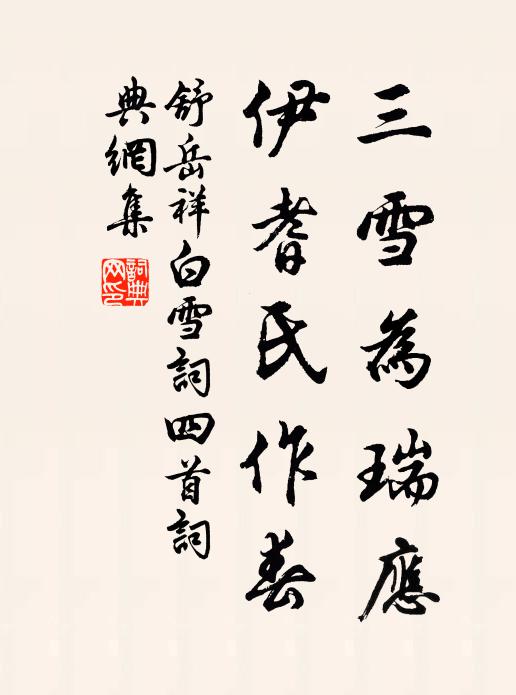 三雪為瑞應
伊耆氏作春
舒岳祥白雪詞四首詞
典網集
詞典
网印